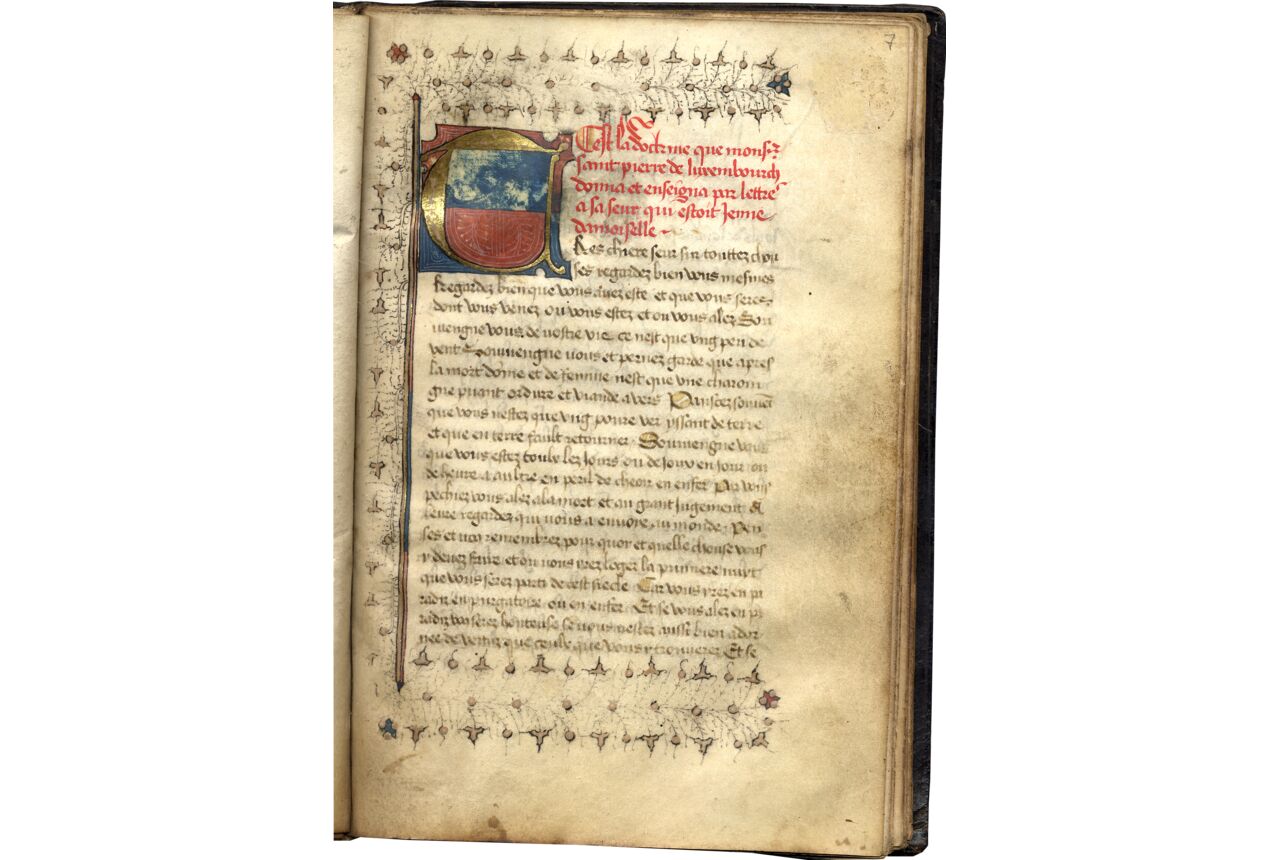 7
Cest la doctrine que monsr
saint pierre de luxembourch
donna et enseigna par lettre
a sa seur qui estoit Jenne
damoiselle
Res chiere seur sur touttez chou
ses regardez bien vous mesmes
Regardez bien que vous avez este et que vous seres
dont vous venez ou vous estez et ou vous alez Sou
uiengne vous de vostre vie ce nest que vng peu de
vent Souuiengne vous et prenez garde que apres
la mort dome et de femme nest que vne charon
gne puant ordure et viande a vers Panscez souuet
que vous nestez que vng poure ver yssant de terre
et que en terre fault retourner Souuiengne vous
que vous estez touls lez Jours ou de Jour en Jour ou
de heure a aultre en peril de cheoir en enfer Par vous
pechiez vous alez a la mort et au grant Jugement A
seure regardez qui vous a envoye au monde Pen
ses et vous remembrez pour quoy et quelle chouse vous
y deuez faire et ou vous yrez loger la premiere nuyt
que vous serez parti de cest siecle Car vous yrez en pa
radiz en purgatoire ou en enfer Et se vous alez en pa
radiz vous serez honteuse se vous nestez aussi bien ador
nee de vertuz que ceulx que vous y trouuerez Et se